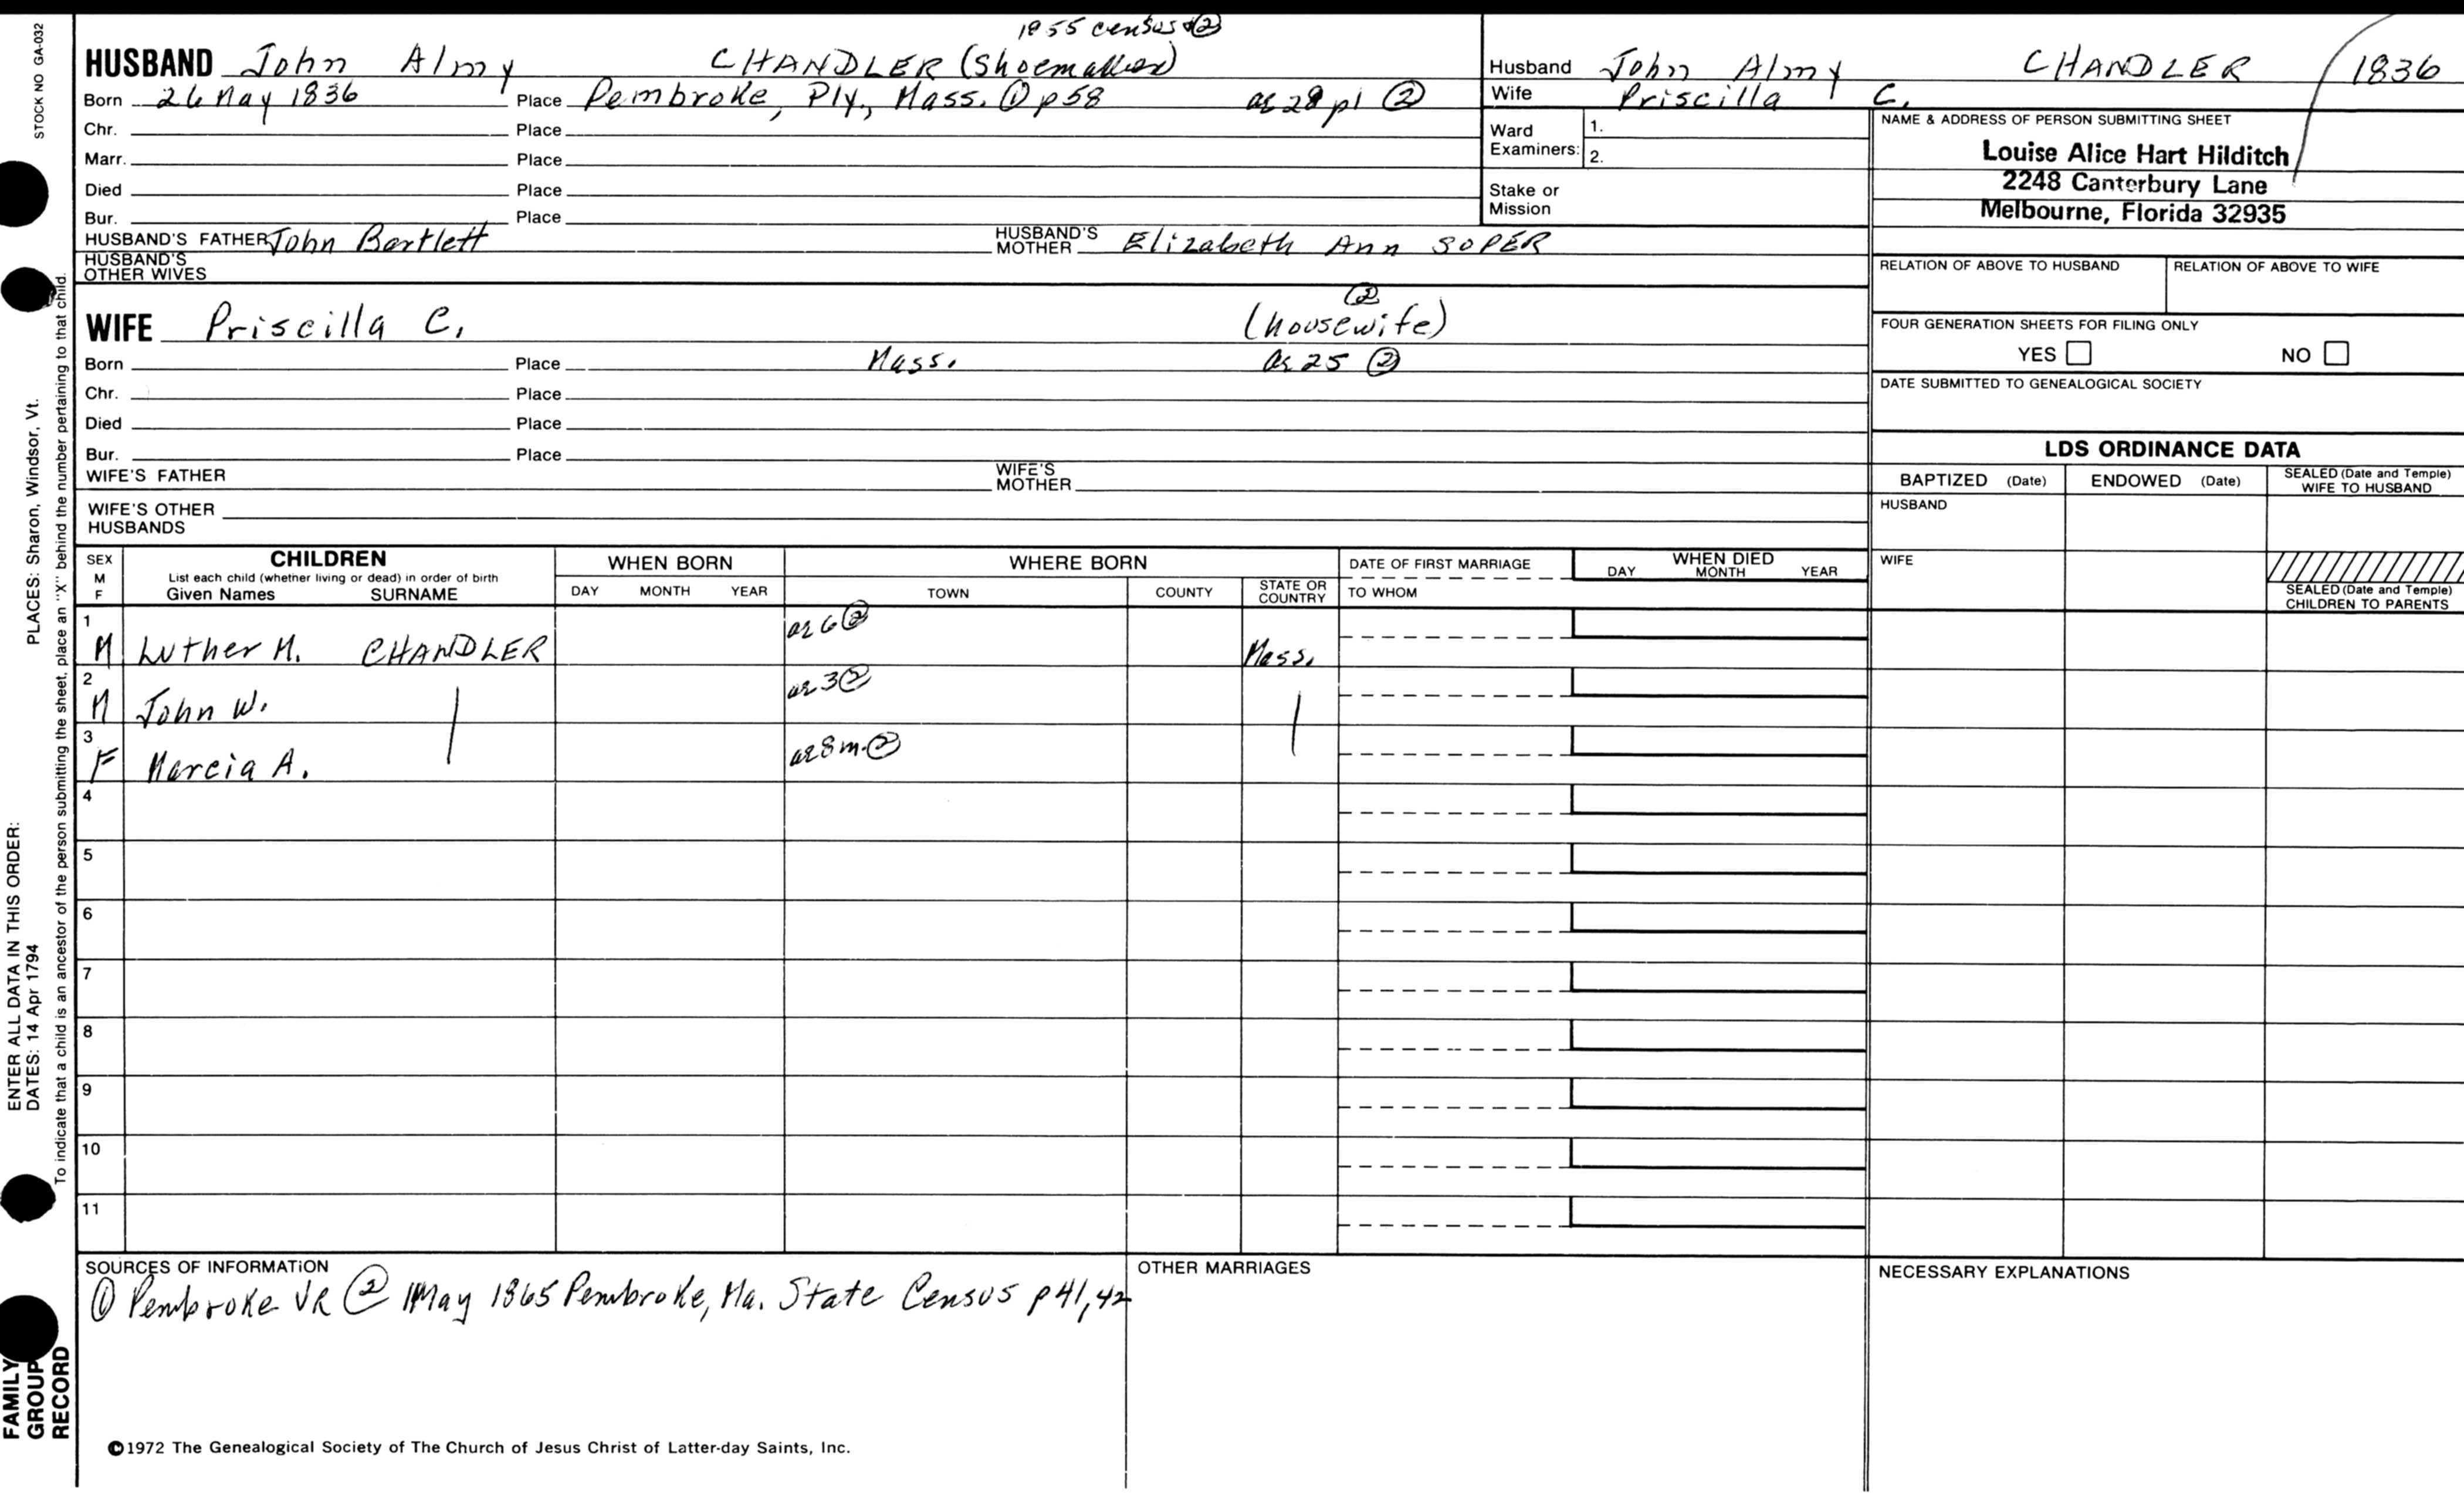 STOCK NO GA-032
1855 census & ②
HUSBAND John Almy CHANDLER (Shoemaker)
Born 26 May 1836 Place Pembroke, Ply., Mass. ① p58 ae 28 p1 ②
Chr. Place
Marr. Place
Died Place
Bur. Place
HUSBAND'S FATHER John Bartlett HUSBAND'S MOTHER Elizabeth Ann SOPER
HUSBAND'S OTHER WIVES
②
WIFE Priscilla C. (housewife)
Born Place Mass. ae 25 ②
Chr. Place
Died Place
Bur. Place
WIFE'S FATHER WIFE'S MOTHER
WIFE'S OTHER HUSBANDS
Husband John Almy CHANDLER 1836
Wife Priscilla C.
Ward Examiners: 1.
2.
Stake or Mission
NAME & ADDRESS OF PERSON SUBMITTING SHEET
Louise Alice Hart Hilditch
2248 Canterbury Lane
Melbourne, Florida 32935
RELATION OF ABOVE TO HUSBAND RELATION OF ABOVE TO WIFE
FOUR GENERATION SHEETS FOR FILING ONLY
YES NO
DATE SUBMITTED TO GENEALOGICAL SOCIETY
LDS ORDINANCE DATA
BAPTIZED (Date) ENDOWED (Date) SEALED (Date and Temple) WIFE TO HUSBAND
HUSBAND
WIFE
SEALED (Date and Temple) CHILDREN TO PARENTS
SEX M F CHILDREN WHEN BORN WHERE BORN DATE OF FIRST MARRIAGE WHEN DIED
List each child (whether living or dead) in order of birth
Given Names SURNAME DAY MONTH YEAR TOWN COUNTY STATE OR COUNTRY TO WHOM DAY MONTH YEAR
1 ae 6 ②
M Luther M. CHANDLER Mass.
2 ae 3 ②
M John W.
3 ae 8 m. ②
F Marcia A.
4
5
6
7
8
9
10
11
SOURCES OF INFORMATION
① Pembroke VR ② 1 May 1865 Pembroke, Ma. State Census p 41, 42
OTHER MARRIAGES
NECESSARY EXPLANATIONS
©1972 The Genealogical Society of The Church of Jesus Christ of Latter-day Saints, Inc.
ENTER ALL DATA IN THIS ORDER:
DATES: 14 Apr 1794 PLACES: Sharon, Windsor, Vt.
To indicate that a child is an ancestor of the person submitting the sheet, place an "X" behind the number pertaining to that child.
FAMILY
GROUP
RECORD